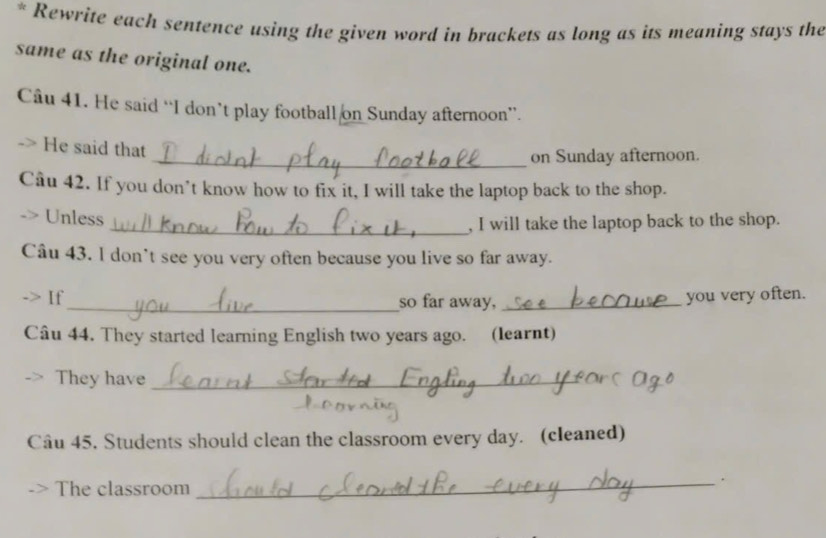 * Rewrite each sentence using the given word in brackets as long as its meaning stays the
same as the original one.
Câu 41. He said "I don't play football on Sunday afternoon".
-> He said that I didnt play football on Sunday afternoon.
Câu 42. If you don't know how to fix it, I will take the laptop back to the shop.
-> Unless will know how to fix it, , I will take the laptop back to the shop.
Câu 43. I don't see you very often because you live so far away.
-> If you live so far away, see because you very often.
Câu 44. They started learning English two years ago. (learnt)
-> They have learnt started Engling two years ago
learning
Câu 45. Students should clean the classroom every day. (cleaned)
-> The classroom should cleaned the every day .